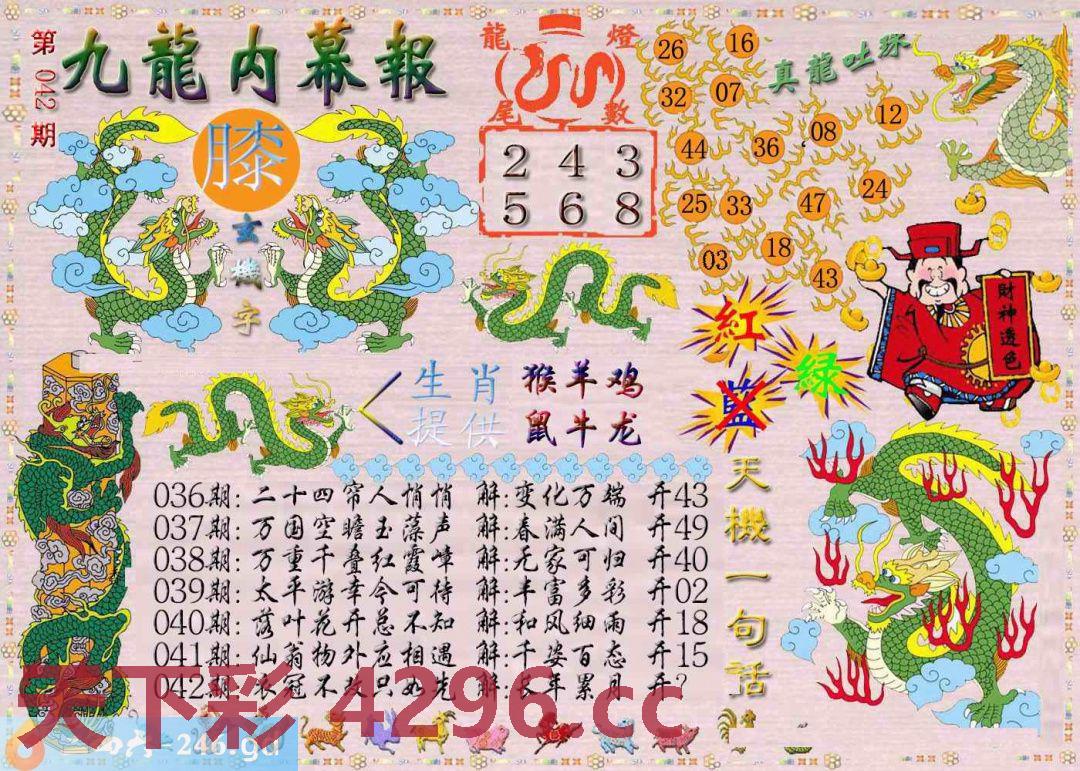 第042期
九龍内幕報
膝
玄機字
龍尾
燈數
2 4 3
5 6 8
真龍吐珠
26 16
32 07
44 36 08 12
25 33 47 24
03 18 43
紅
绿
藍
財神透色
生肖 猴羊鸡
提供 鼠牛龙
036期: 二十四帘人悄悄 解:变化万端 开43
037期: 万国空瞻玉藻声 解:春满人间 开49
038期: 万重千叠红霞嶂 解:无家可归 开40
039期: 太平游幸今可待 解:丰富多彩 开02
040期: 落叶花开总不知 解:和风细雨 开18
041期: 仙翁物外应相遇 解:千姿百态 开15
042期: 衣冠不改只如先 解:长年累月 开?
天機一句话
天下彩 4296.cc
=246.gd